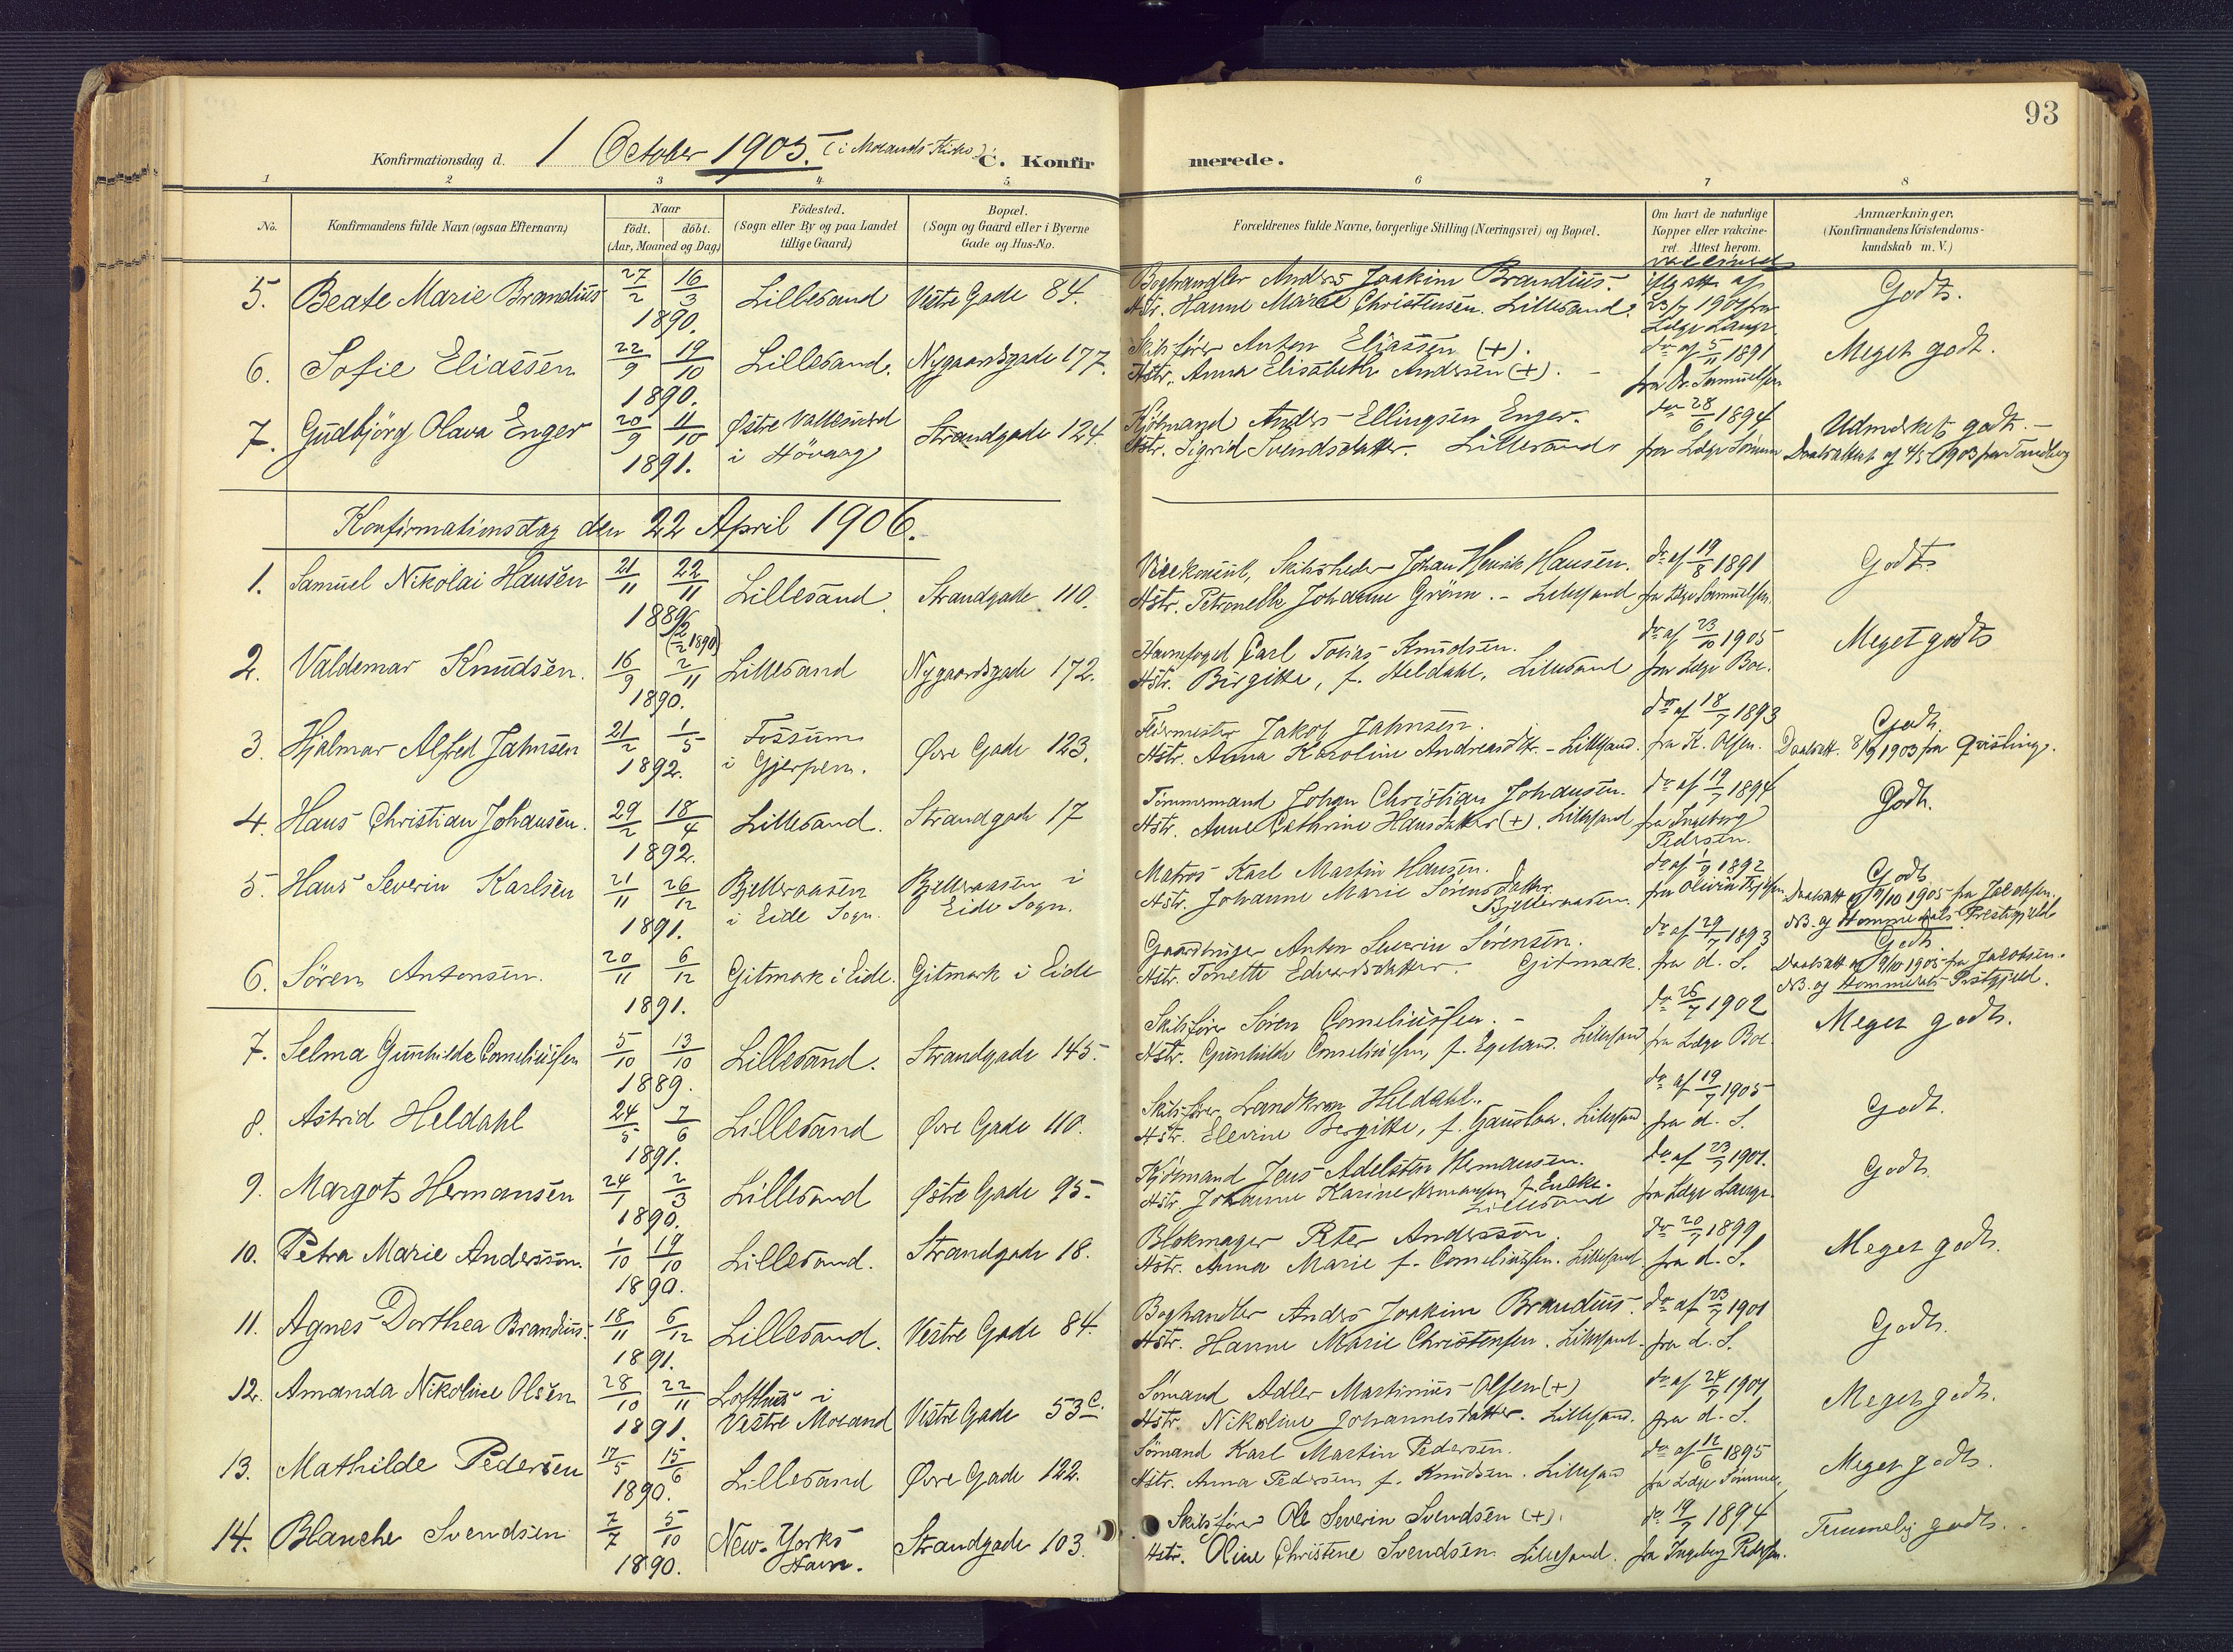 93
Konfirmationsdag d. 1 October 1905. (i Moands Kirke) C. Konfir merede.
1 2 3 4 5 6 7 8
No.
Konfirmandens fulde Navn (ogsaa Efternavn)
Naar
födt. döbt.
(Aar, Maaned og Dag)
Födested.
(Sogn eller By og paa Landet
tillige Gaard)
Bopæl.
(Sogn og Gaard eller i Byerne
Gade og Hus-No.
Forældrenes fulde Navne, borgerlige Stilling (Næringsvei) og Bopæl.
Om havt de naturlige
Kopper eller vakcine-
ret. Attest herom.
Anmærkninger.
(Konfirmandens Kristendoms-
kundskab m. V.)
5. Beate Marie Brandius 27/2 16/3 Lillesand Vestre Gade 84. Boghandler Anders Joakim Brandius. Godt.
1890. Hstr. Hanne Marie Christensen. Lillesand. 23/7 1901 fra
Læge Lange
6. Sofie Eliassen 22/9 19/10 Lillesand. Nygaardsgade 177. Skibsfører Anton Eliassen (+). do af 5/11 1891 Meget godt.
1890. Hstr. Anna Elisabeth Andersen (+). fra Dr. Samuelsen
7. Gudbjörg Olava Enger 20/9 11/10 Østre Vallesværd Strandgade 124. Kjøbmand Anders Ellingsen Enger. do 28/6 1894 Udmerket godt. -
1891. i Hövaag Hstr. Sigrid Svendsdatter. Lillesand fra Læge Sömme Daabsattest af 4/5 1903 fra Tandberg
Konfirmationsdag den 22 April 1906.
1. Samuel Nikolai Hansen 21/11 22/11 Lillesand. Strandgade 110. Vicekonsul, Skibsreder Johan Henrik Hansen. do af 19/8 1891 Godt.
1889 Hstr. Petronelle Johanne Grönn. - Lillesand fra Læge Samuelsen.
(2/2 1890)
2. Valdemar Knudsen. 16/9 2/11 Lillesand Nygaardsgade 172. Havnefoged Carl Tobias Knudsen. do af 23/10 1905 Meget godt
1890. Hstr. Birgitte, f. Heldahl, Lillesand fra Læge Boe.
3. Hjalmar Alfred Jahnsen 21/2 1/5 Fossum Øvre Gade 123. Jakob Jahnsen. do af 18/7 1893 Godt
1892. i Gjerpen. Hstr. Anna Karoline Andreasdtr. - Lillesand. fra K. Olsen. Daabsatt. 8/9 1903 fra Qvisling.
4. Hans Christian Johansen. 29/2 18/4 Lillesand. Strandgade 17 Tømmermand Johan Christian Johansen. do af 19/7 1894 Godt.
1892. Hstr. Anne Cathrine Hansdatter (+). Lillesand fra Ingeborg
Pedersen.
5. Hans Severin Karlsen 21/11 26/12 Bjelleraasen Bjelleraasen i Matros Karl Martin Hansen. do af 1/9 1892 Godt
1891. i Eide Sogn. Eide Sogn. Hstr. Johanne Marie Sörensdatter. Bjelleraasen. Daabsatt af 9/10 1905 fra Jacobsen.
NB. og Hommedals Prestegjeld
6. Sören Antonsen. 20/11 6/12 Gitmark i Eide. Gitmark i Eide Gaardbruger Anton Severin Sörensen. do af 29/7 1893 Godt
1891. Hstr. Tonette Edvardsdatter. Gitmark. fra d. S. Daabsatt af 9/10 1905 fra Jacobsen.
NB. og Hommedals Prestgjeld.
7. Selma Gunhilde Corneliussen 5/10 13/10 Lillesand. Strandgade 145. Skibsfører Sören Corneliussen. - do 26/7 1902 Meget godt.
1889. Hstr. Gunhilde Corneliussen, f. Egeland. Lillesand fra Læge Boe.
8. Astrid Heldahl 24/5 7/6 Lillesand Øvre Gade 110. Skibsfører Landkron Heldahl. do af 19/7 1905 Godt.
1891. Hstr. Elevine Bergitte, f. Gauslaa. Lillesand. fra d. S.
9. Margot Hermansen 24/1 2/3 Lillesand Østre Gade 95. Kjøbmand Jens Adelsten Hermansen. do af 23/7 1901. Godt
1890. Hstr. Johanne Karine Hermansen f. Lillesand fra Læge Lange.
10. Petra Marie Andersson. 1/10 19/10 Lillesand. Strandgade 18. Blokmager Peter Andersson. do 20/7 1899 Meget godt.
1890. Hstr. Anna Marie f. Corneliussen. Lillesand. fra d. S.
11. Agnes Dorthea Brandius. 18/11 6/12 Lillesand. Vestre Gade 84. Boghandler Anders Joakim Brandius. do af 23/7 1901 Godt.
1891. Hstr. Hanne Marie Christensen. Lillesand. fra d. S.
12. Amanda Nikoline Olsen 28/10 22/11 Lofthus i Vestre Gade 53 c. Sömand Adler Martinius Olsen (+) do af 24/7 1901 Meget godt.
1891. Vestre Moland Hstr. Nikoline Johannesdatter. Lillesand. fra d. S.
13. Mathilde Pedersen 17/5 15/6 Lillesand Øvre Gade 122. Sömand Karl Martin Pedersen. do af 12/6 1895 Meget godt.
1890. Hstr. Anna Pedersen f. Knudsen. Lillesand fra Læge Sömme.
14. Blanche Svendsen 7/7 5/10 New-Yorks Strandgade 103. Skibsfører Ole Severin Svendsen (+). do 19/7 1894 Temmelig godt.
1890. Havn. Hstr. Oline Christene Svendsen. Lillesand. fra Ingeborg Pedersen.